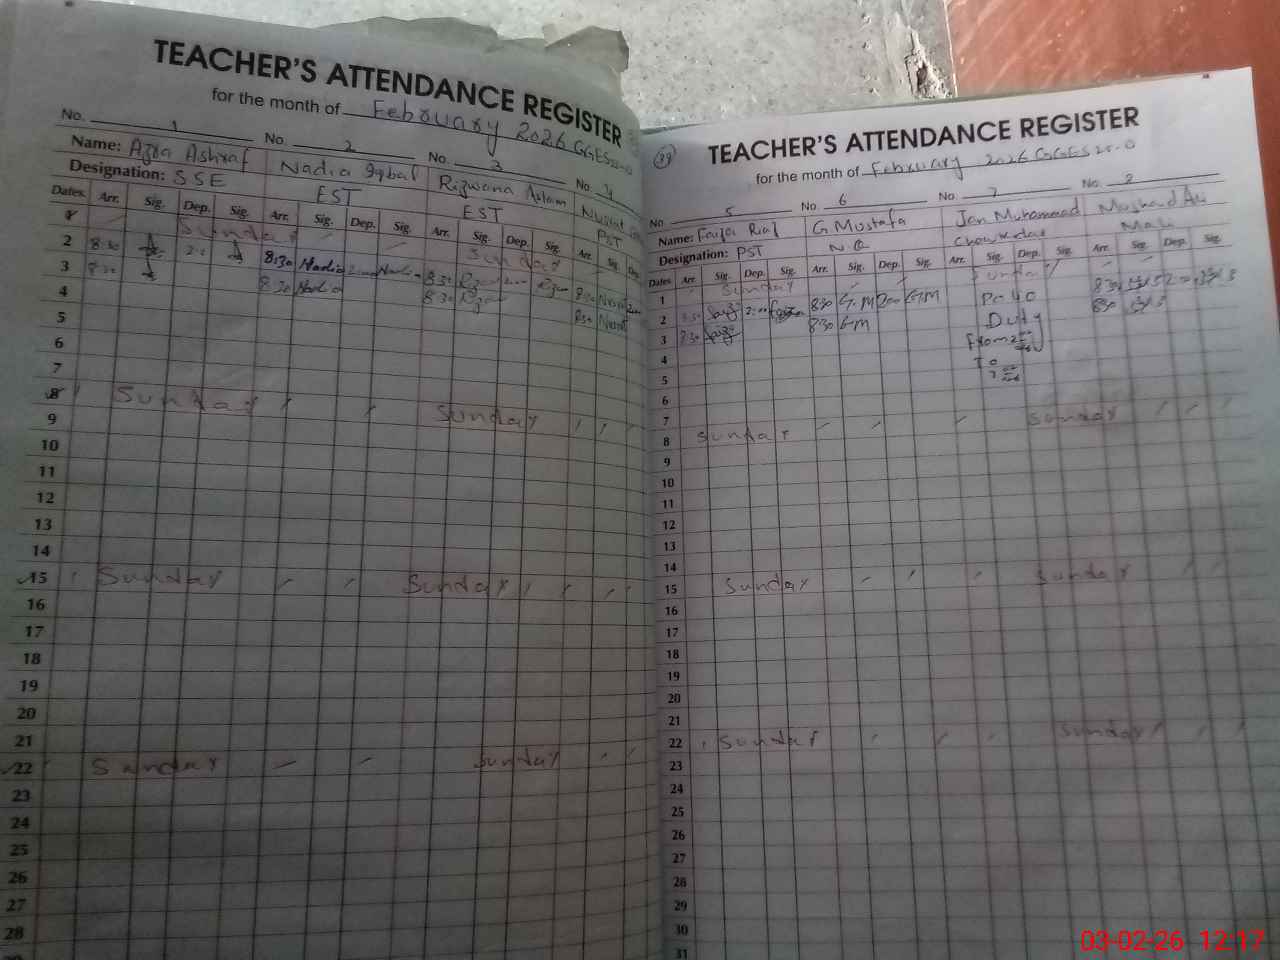 TEACHER'S ATTENDANCE REGISTER
for the month of February 2026 GGES 25-D
No. 1 No. 2 No. 3 No. 4
Name: Azra Ashraf Nadia Iqbal Rizwana Aslam Nusrat
Designation: SSE EST EST PST
Dates Arr. Sig. Dep. Sig. Arr. Sig. Dep. Sig. Arr. Sig. Dep. Sig. Arr. Sig. Dep.
1 Sunday Sunday
2 8:30 2:00 8:30 Nadia Nadia 8:30 8:30 Nusrat
3 8:30 8:30 Nadia 8:30 8:30 Nusrat
4
5
6
7
8 Sunday Sunday
9
10
11
12
13
14
15 Sunday Sunday
16
17
18
19
20
21
22 Sunday Sunday
23
24
25
26
27
28
TEACHER'S ATTENDANCE REGISTER
for the month of February 2026 GGES 25-D
No. 5 No. 6 No. 7 No. 8
Name: Faiza Riaz G Mustafa Jan Muhammad Mushad Ali
Designation: PST N.Q Chowkidar Mali
Dates Arr. Sig. Dep. Sig. Arr. Sig. Dep. Sig. Arr. Sig. Dep. Sig. Arr. Sig. Dep. Sig.
1 Sunday Sunday
2 8:30 2:00 8:30 G.M 2:00 G.M Polio 8:30 2:00
3 8:30 8:30 G.M Duty 8:30
4 From 2
5 To
6
7
8 Sunday Sunday
9
10
11
12
13
14
15 Sunday Sunday
16
17
18
19
20
21
22 Sunday Sunday
23
24
25
26
27
28
29
30
31
03-02-26 12:17